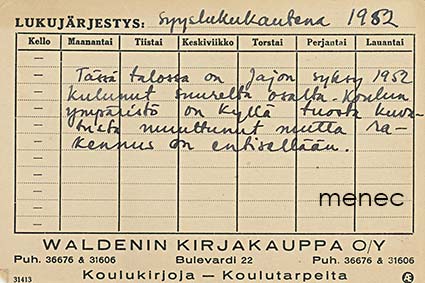 LUKUJÄRJESTYS: syyslukukautena 1952
Kello Maanantai Tiistai Keskiviikko Torstai Perjantai Lauantai
Tässä talossa on Jajon syksy 1952
kulunut suurelta osalta. Koulun
ympäristö on kyllä tuosta kuva-
tusta muuttunut mutta ra-
kennus on entisellään.
menec
WALDENIN KIRJAKAUPPA O/Y
Puh. 36676 & 31606 Bulevardi 22 Puh. 36676 & 31606
31413 Koulukirjoja — Koulutarpeita